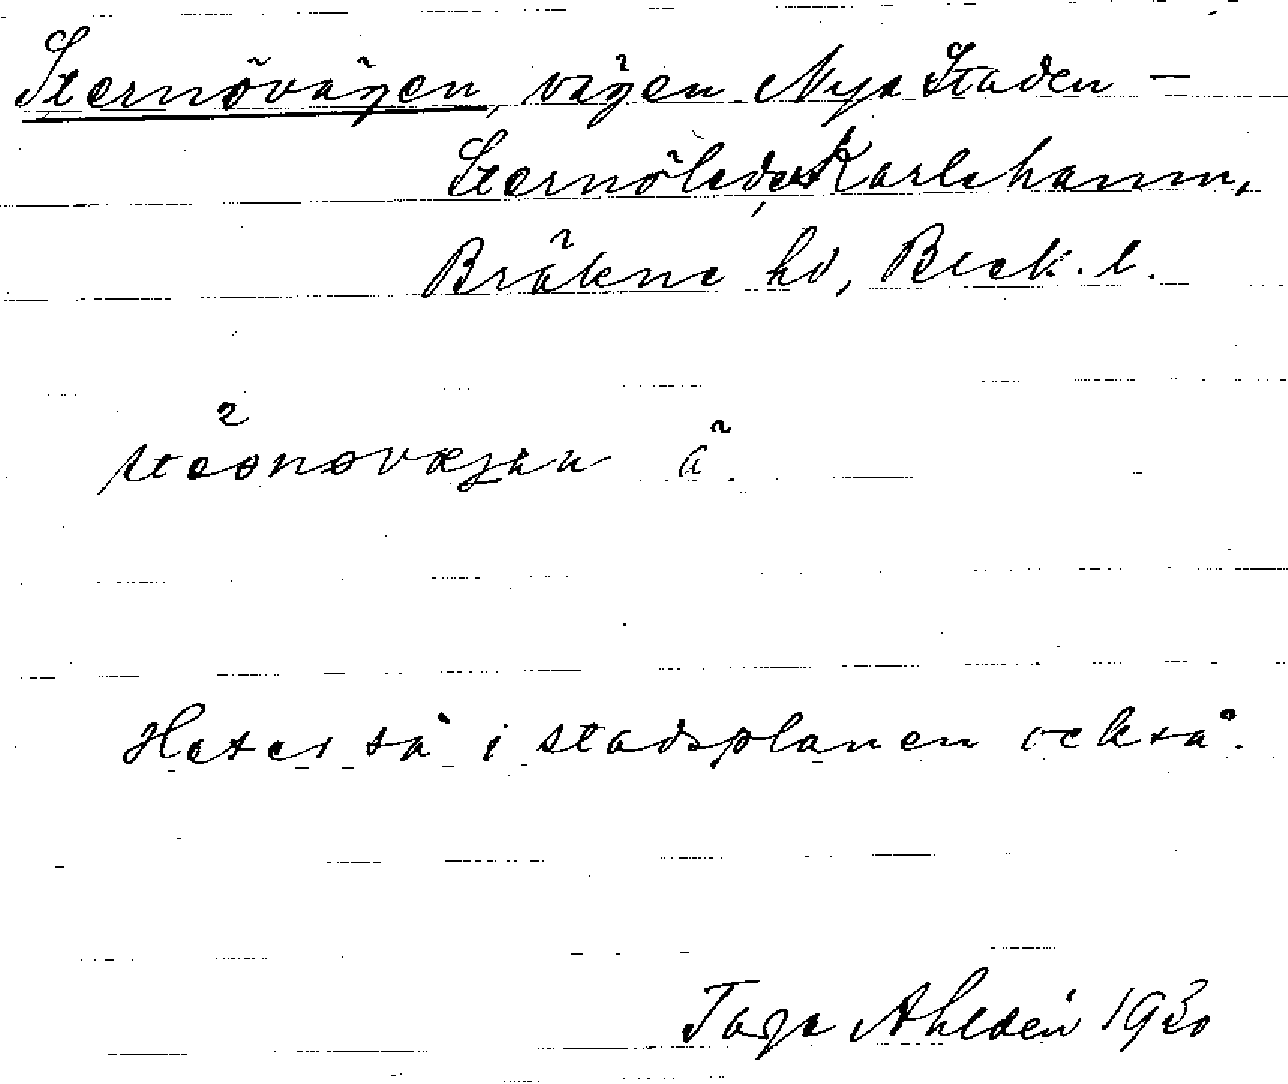 Sternövägen, vägen Nya Staden –
Sternöleden, Karlshamn,
Bräkne hd, Blek. l.
Heter så i stadsplanen också.
Tage Ahldén 1930